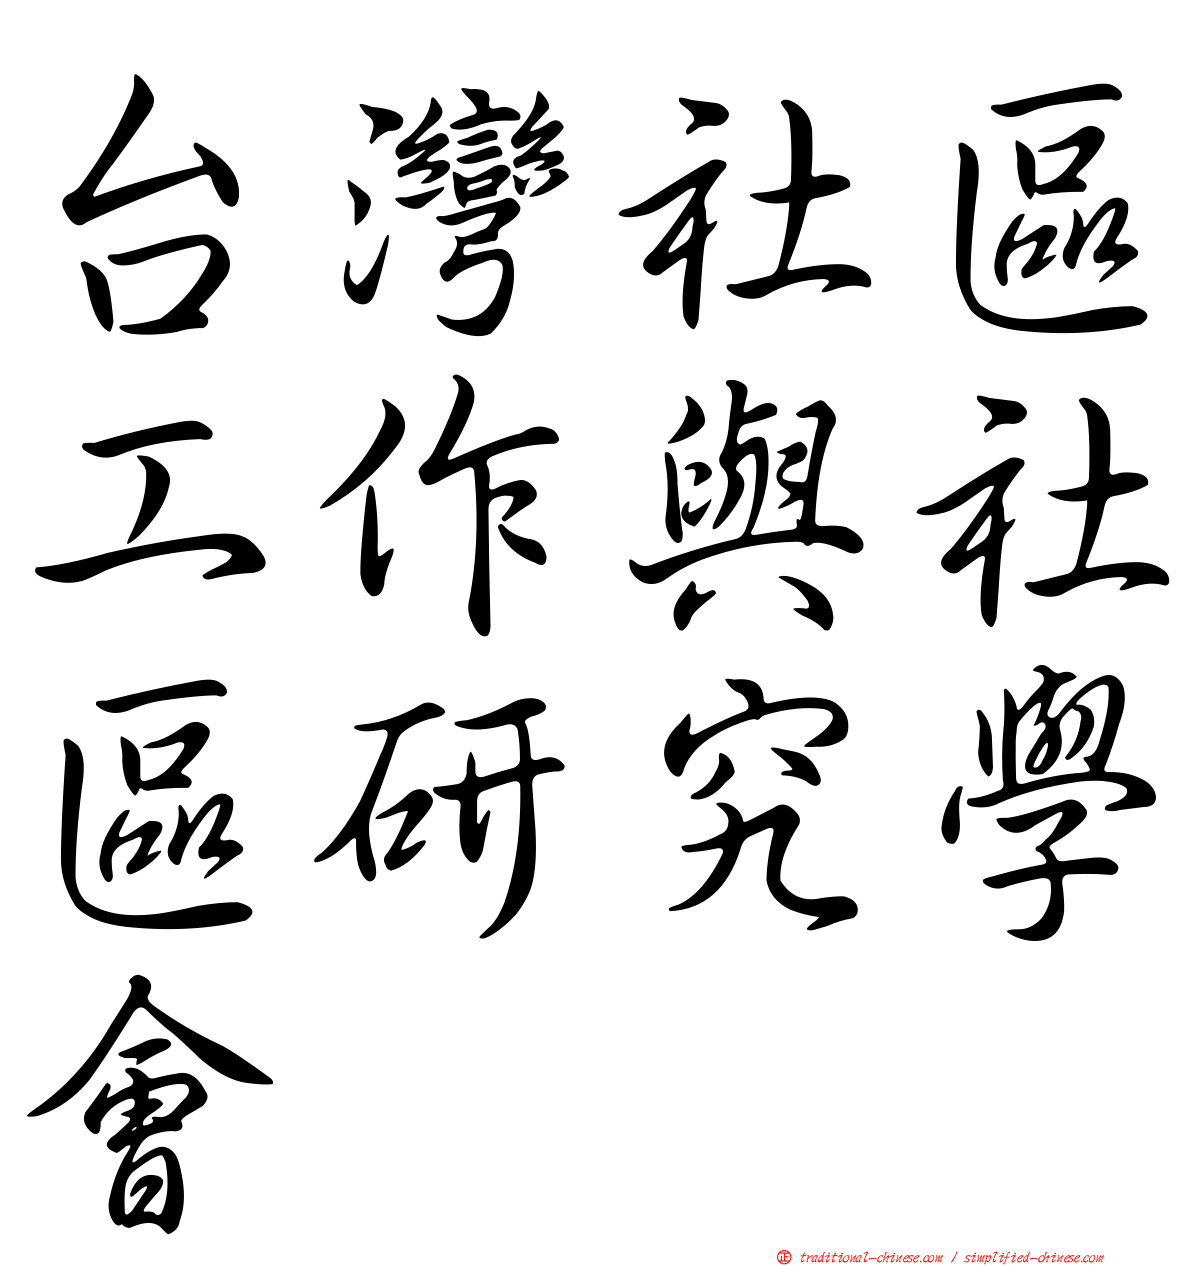 台灣社區
工作與社
區研究學
會
正 traditional-chinese.com / simplified-chinese.com